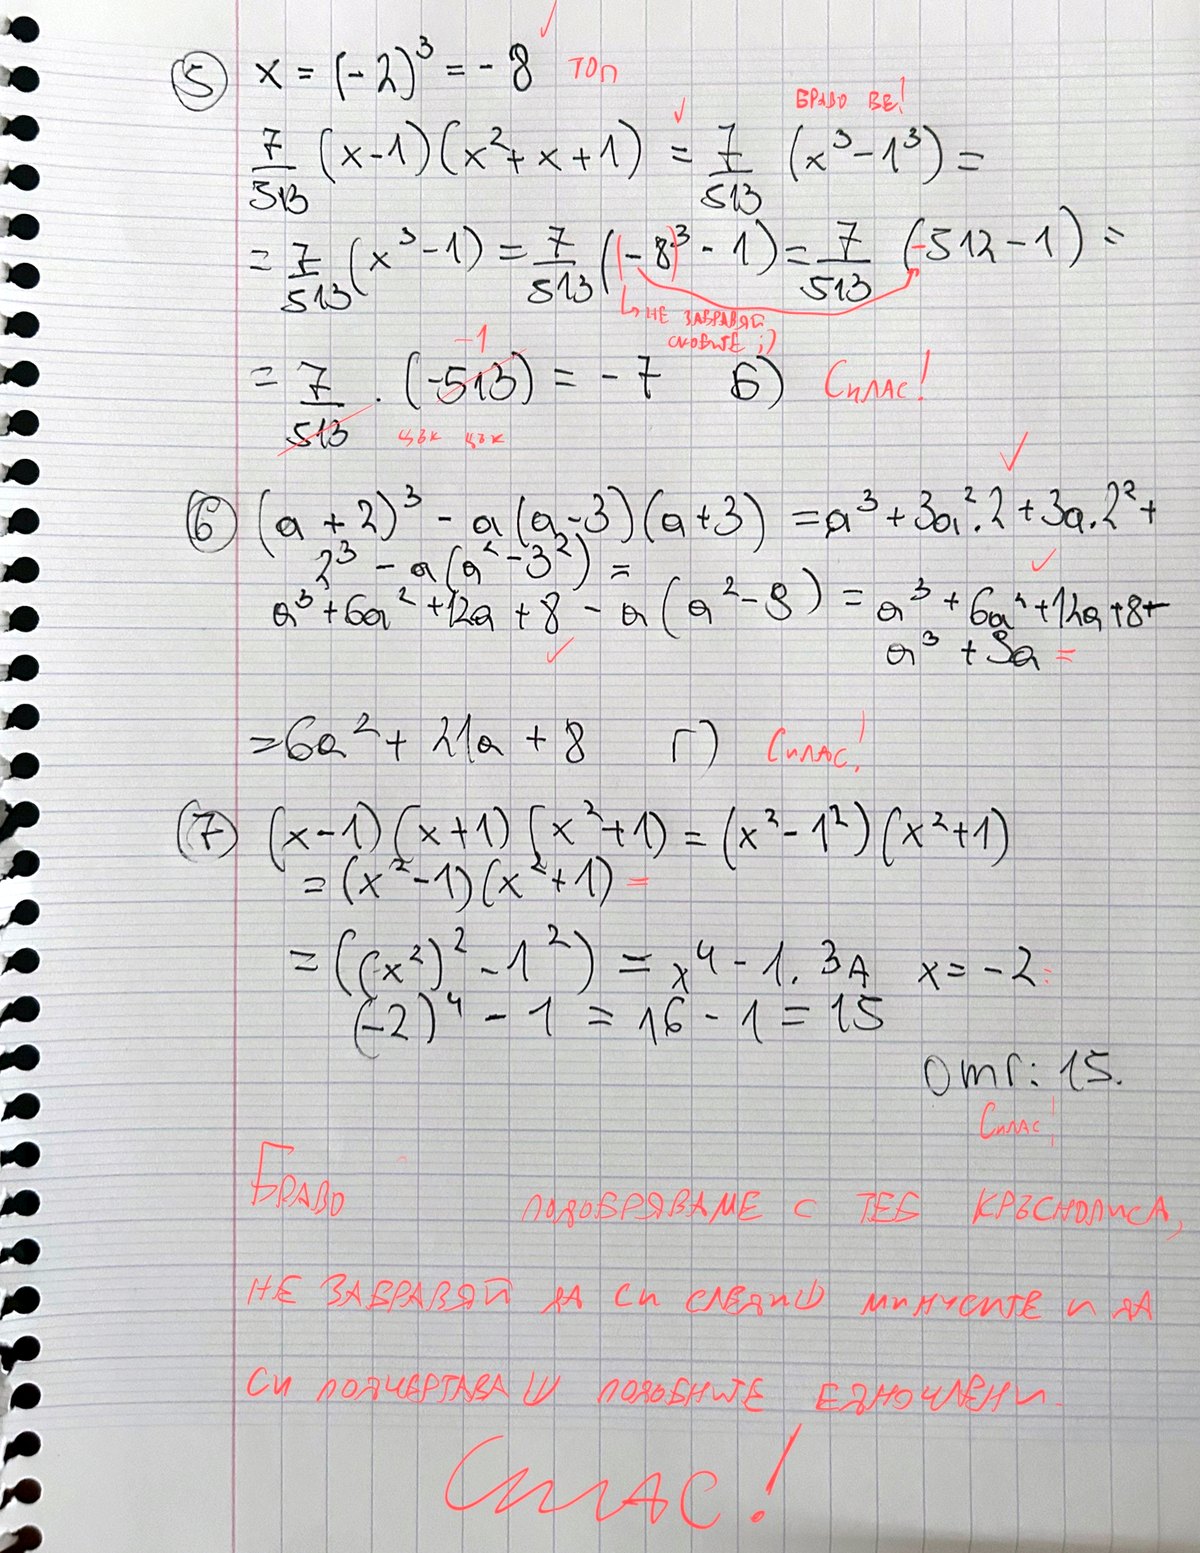 ⑤ x = (-2)³ = -8 ✓ ТОП
БРАВО ВЕ!
7/513 (x-1)(x²+x+1) ✓ = 7/513 (x³-1³) =
= 7/513 (x³-1) = 7/513 (-8³-1) = 7/513 (-512-1) =
↳ НЕ ЗАБРАВЯЙ
СКОБИТЕ ;)
-1
= 7/513 . (-513) = -7 Б) Силас!
ЦЪК ЦЪК
⑥ (a+2)³ - a(a-3)(a+3) = a³+3a².2+3a.2²+ ✓
2³ - a(a²-3²) =
a³+6a²+12a+8 - a(a²-9) = a³+6a²+12a+8- ✓
a³+9a =
✓
= 6a² + 21a + 8 Г) Силас!
⑦ (x-1)(x+1)(x²+1) = (x²-1²)(x²+1)
= (x²-1)(x²+1) =
= ((x²)²-1²) = x⁴-1. ЗА x = -2:
(-2)⁴ - 1 = 16 - 1 = 15
Отг: 15.
Силас!
БРАВО ПОДОБРЯВАМЕ С ТЕБ КРЪСНОПИСА,
НЕ ЗАБРАВЯЙ ДА СИ СЛЕДИШ МИНУСИТЕ И ДА
СИ ПОДЧЕРТАВАШ ПОДОБНИТЕ ЕДНОЧЛЕНИ.
СИЛАС!